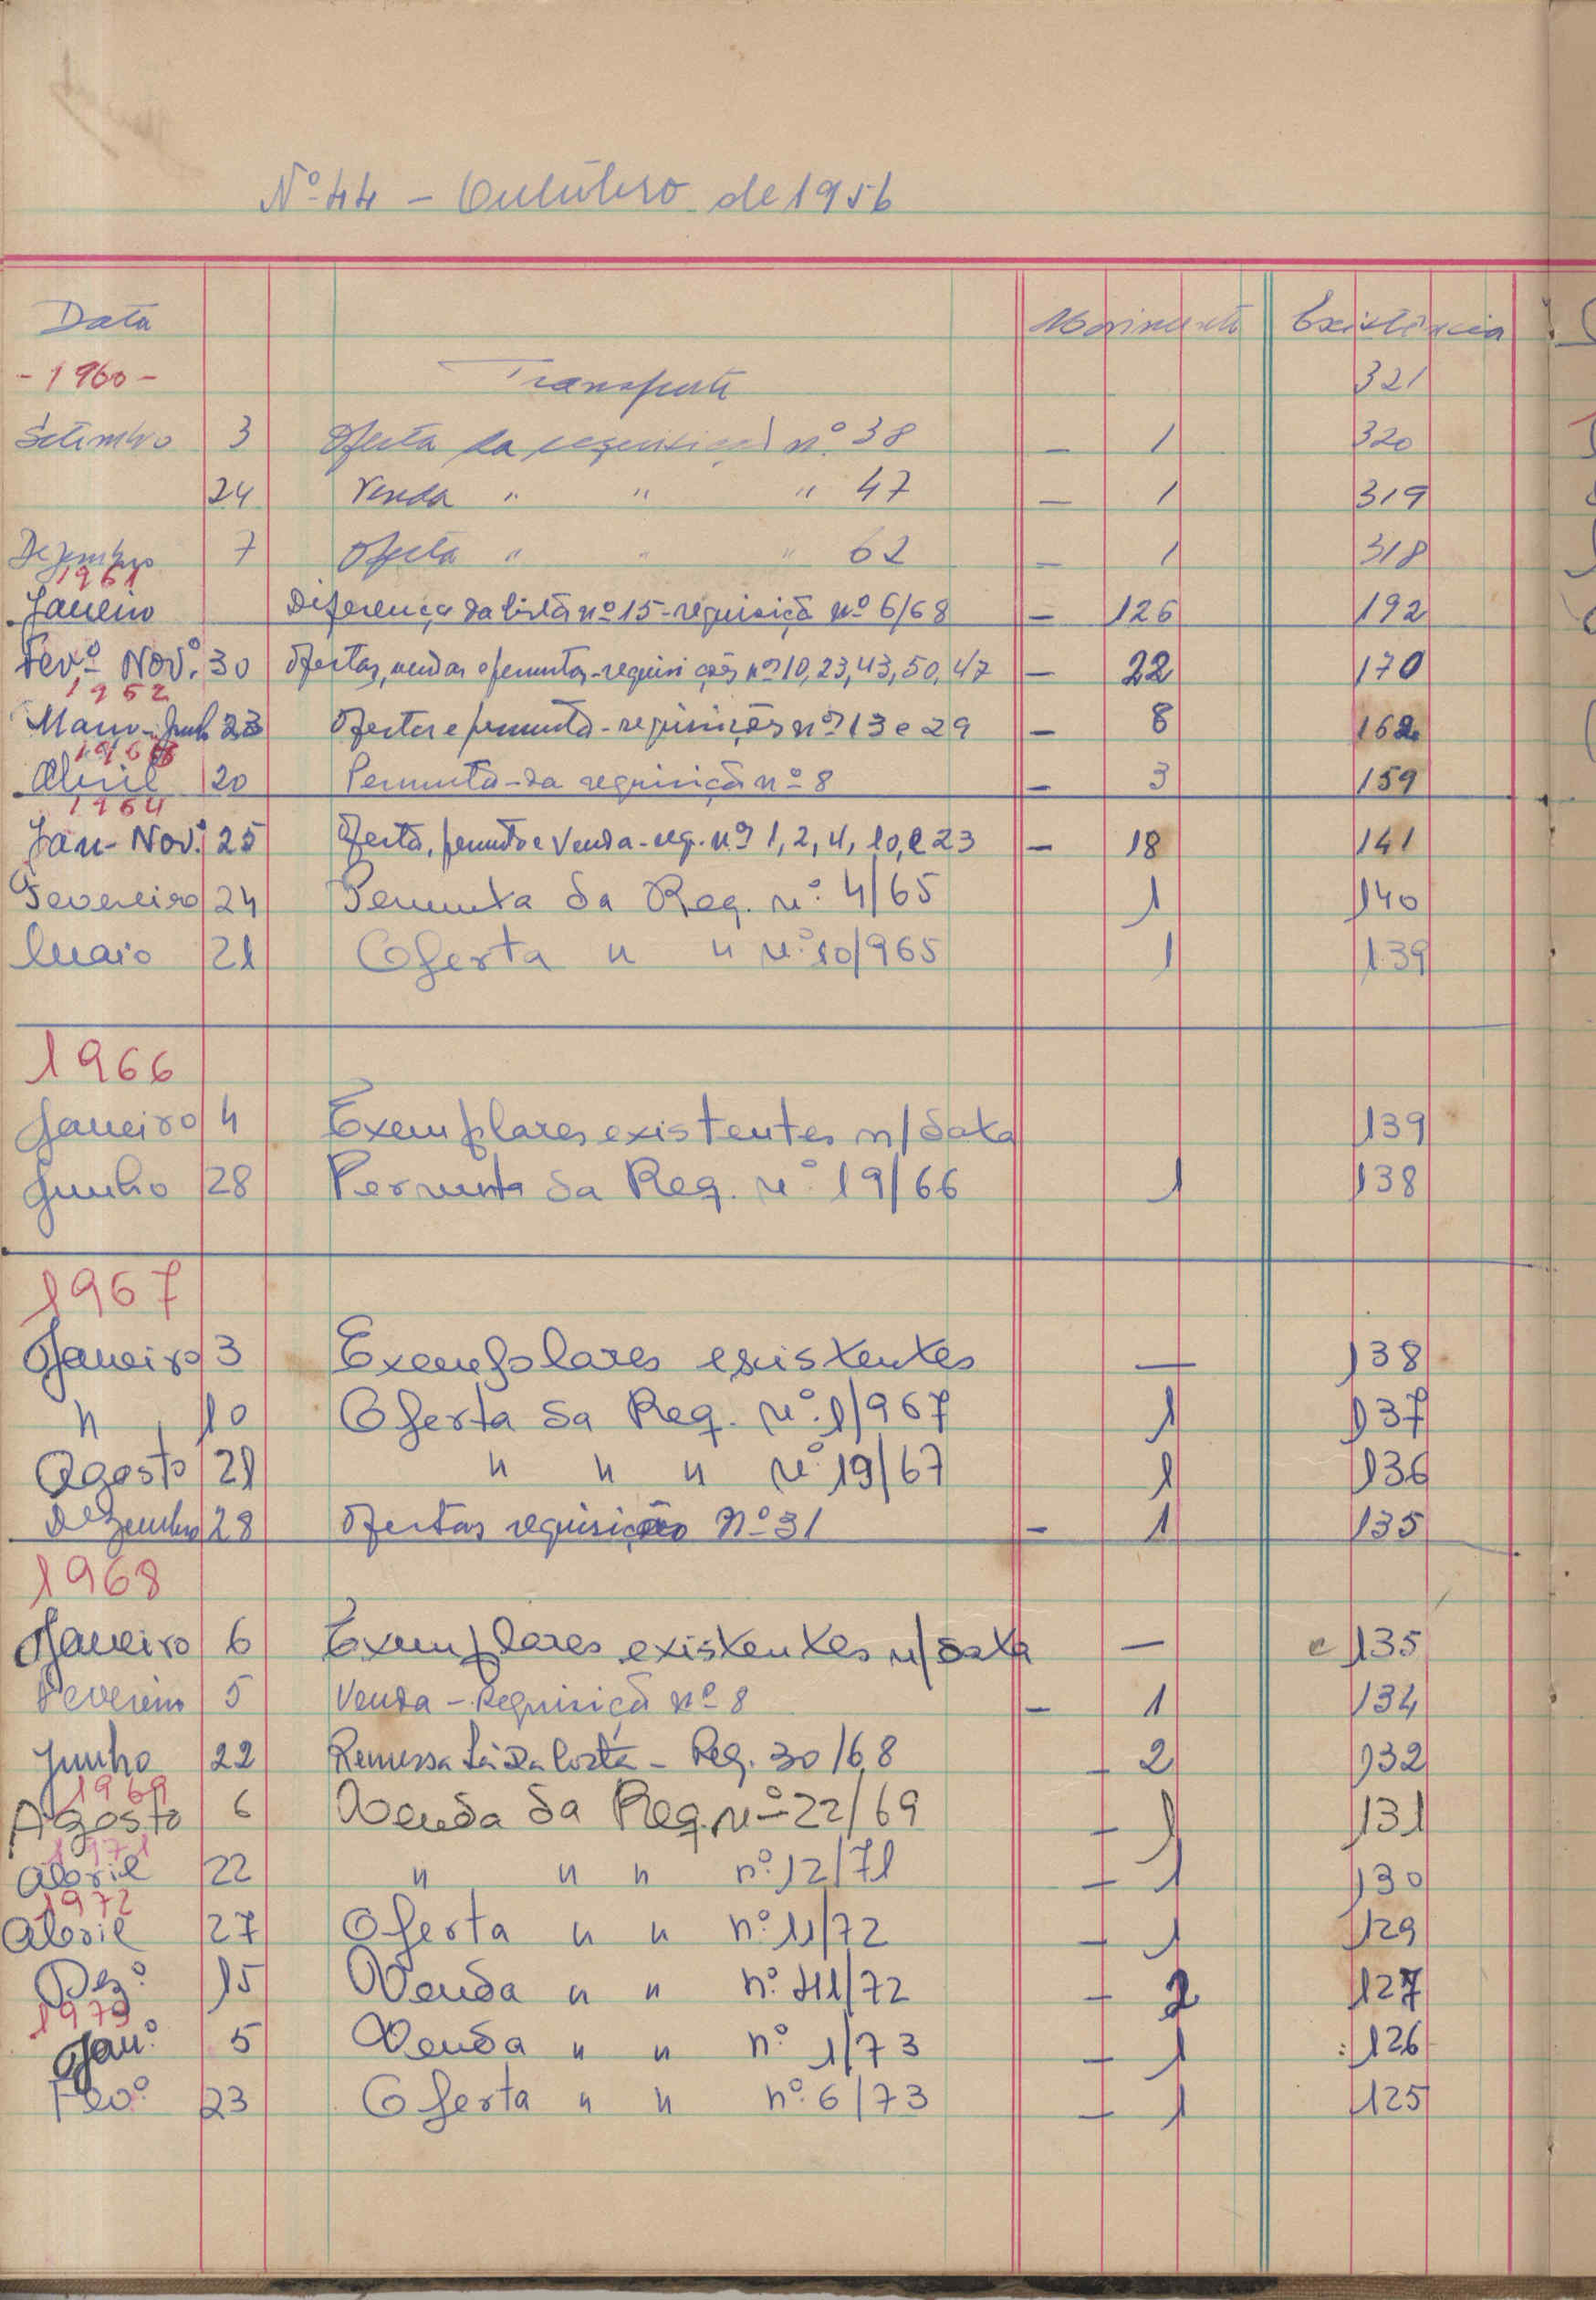 Nº 44 - Outubro de 1956
Data Movimento Existência
- 1960 - Transporte 321
Setembro 3 Oferta da requisição nº 38 - 1 320
24 Venda " " " 47 - 1 319
Dezembro 7 Oferta " " " 62 - 1 318
1961
Janeiro Diferença da lista nº 15 - requisiçã nº 6/68 - 126 192
Fevº - Novº 30 Ofertas, vendas e permutas - requisições nos 10, 23, 43, 50, 47 - 22 170
1952
Março - Junho 23 Ofertas e permuta - requisições nos 13 e 29 - 8 162
1963
Abril 20 Permuta - da requisiçã nº 8 - 3 159
1964
Jan - Novº 25 Oferta, permuta e Venda - req. nos 1, 2, 4, 10, e 23 - 18 141
Fevereiro 24 Permuta da Req. nº 4/65 1 140
Maio 21 Oferta " " nº 10/965 1 139
1966
Janeiro 4 Exemplares existentes n/data 139
Junho 28 Permuta da Req. nº 19/66 1 138
1967
Janeiro 3 Exemplares existentes — 138
" 10 Oferta da Req. nº 1/967 1 137
Agosto 21 " " " nº 19/67 1 136
Dezembro 28 Ofertas requisição Nº 31 - 1 135
1968
Janeiro 6 Exemplares existentes n/data — 135
Fevereiro 5 Venda - Requisiçã nº 8 - 1 134
Junho 22 Remessa Costa - Req. 30/68 - 2 132
1969
Agosto 6 Venda da Req. nº 22/69 - 1 131
1971
Abril 22 " " " nº 12/71 - 1 130
1972
Abril 27 Oferta " " nº 11/72 - 1 129
Dezº 15 Venda " " nº 41/72 - 2 127
1973
Janº 5 Venda " " nº 1/73 - 1 126
Fevº 23 Oferta " " nº 6/73 - 1 125